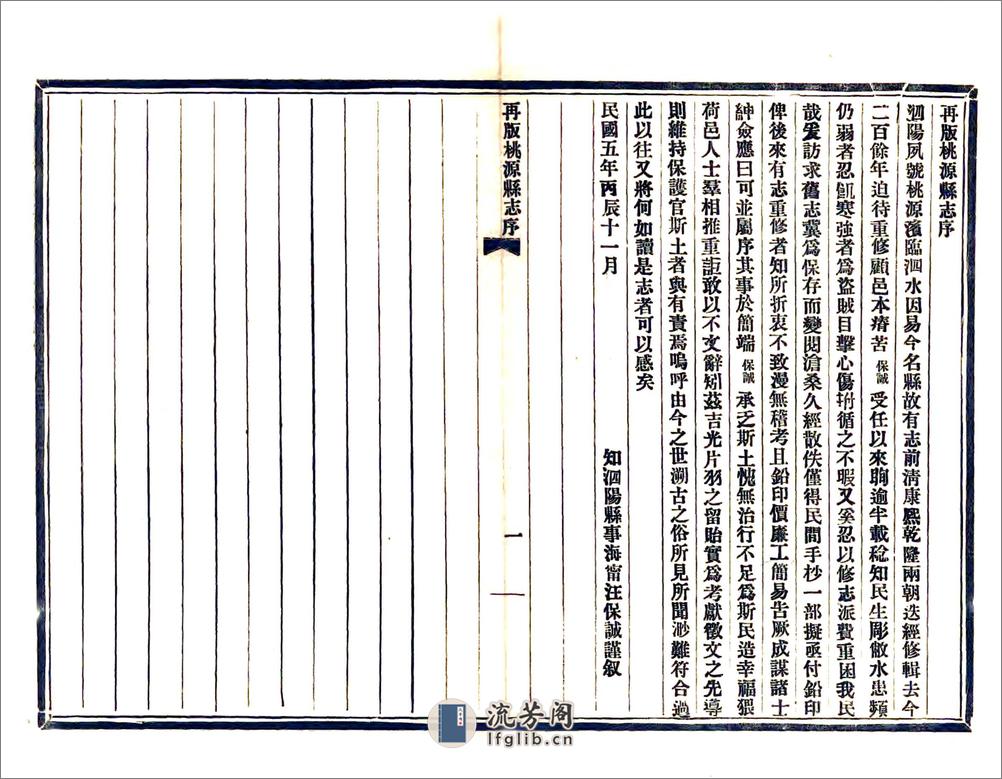 再版桃源縣志序
泗陽夙號桃源濱臨泗水因易今名縣故有志前清康熙乾隆兩朝迭經修輯去今
二百餘年迫待重修顧邑本瘠苦保誠受任以來晌逾半載稔知民生彫敝水患頻
仍弱者忍飢寒強者爲盜賊目擊心傷拊循之不暇又奚忍以修志派費重困我民
哉爰訪求舊志冀爲保存而變閱滄桑久經散佚僅得民間手抄一部擬亟付鉛印
俾後來有志重修者知所折衷不致漫無稽考且鉛印價廉工簡易告厥成謀諸士
紳僉應曰可並屬序其事於簡端保誠承乏斯土愧無治行不足爲斯民造幸福猥
荷邑人士羣相推重詎敢以不文辭矧茲吉光片羽之留貽實爲考獻徵文之先導
則維持保護官斯土者與有責焉嗚呼由今之世溯古之俗所見所聞渺難符合過
此以往又將何如讀是志者可以感矣
民國五年丙辰十一月
知泗陽縣事海甯汪保誠謹叙
再版桃源縣志序
一
流芳阁
lfglib.cn